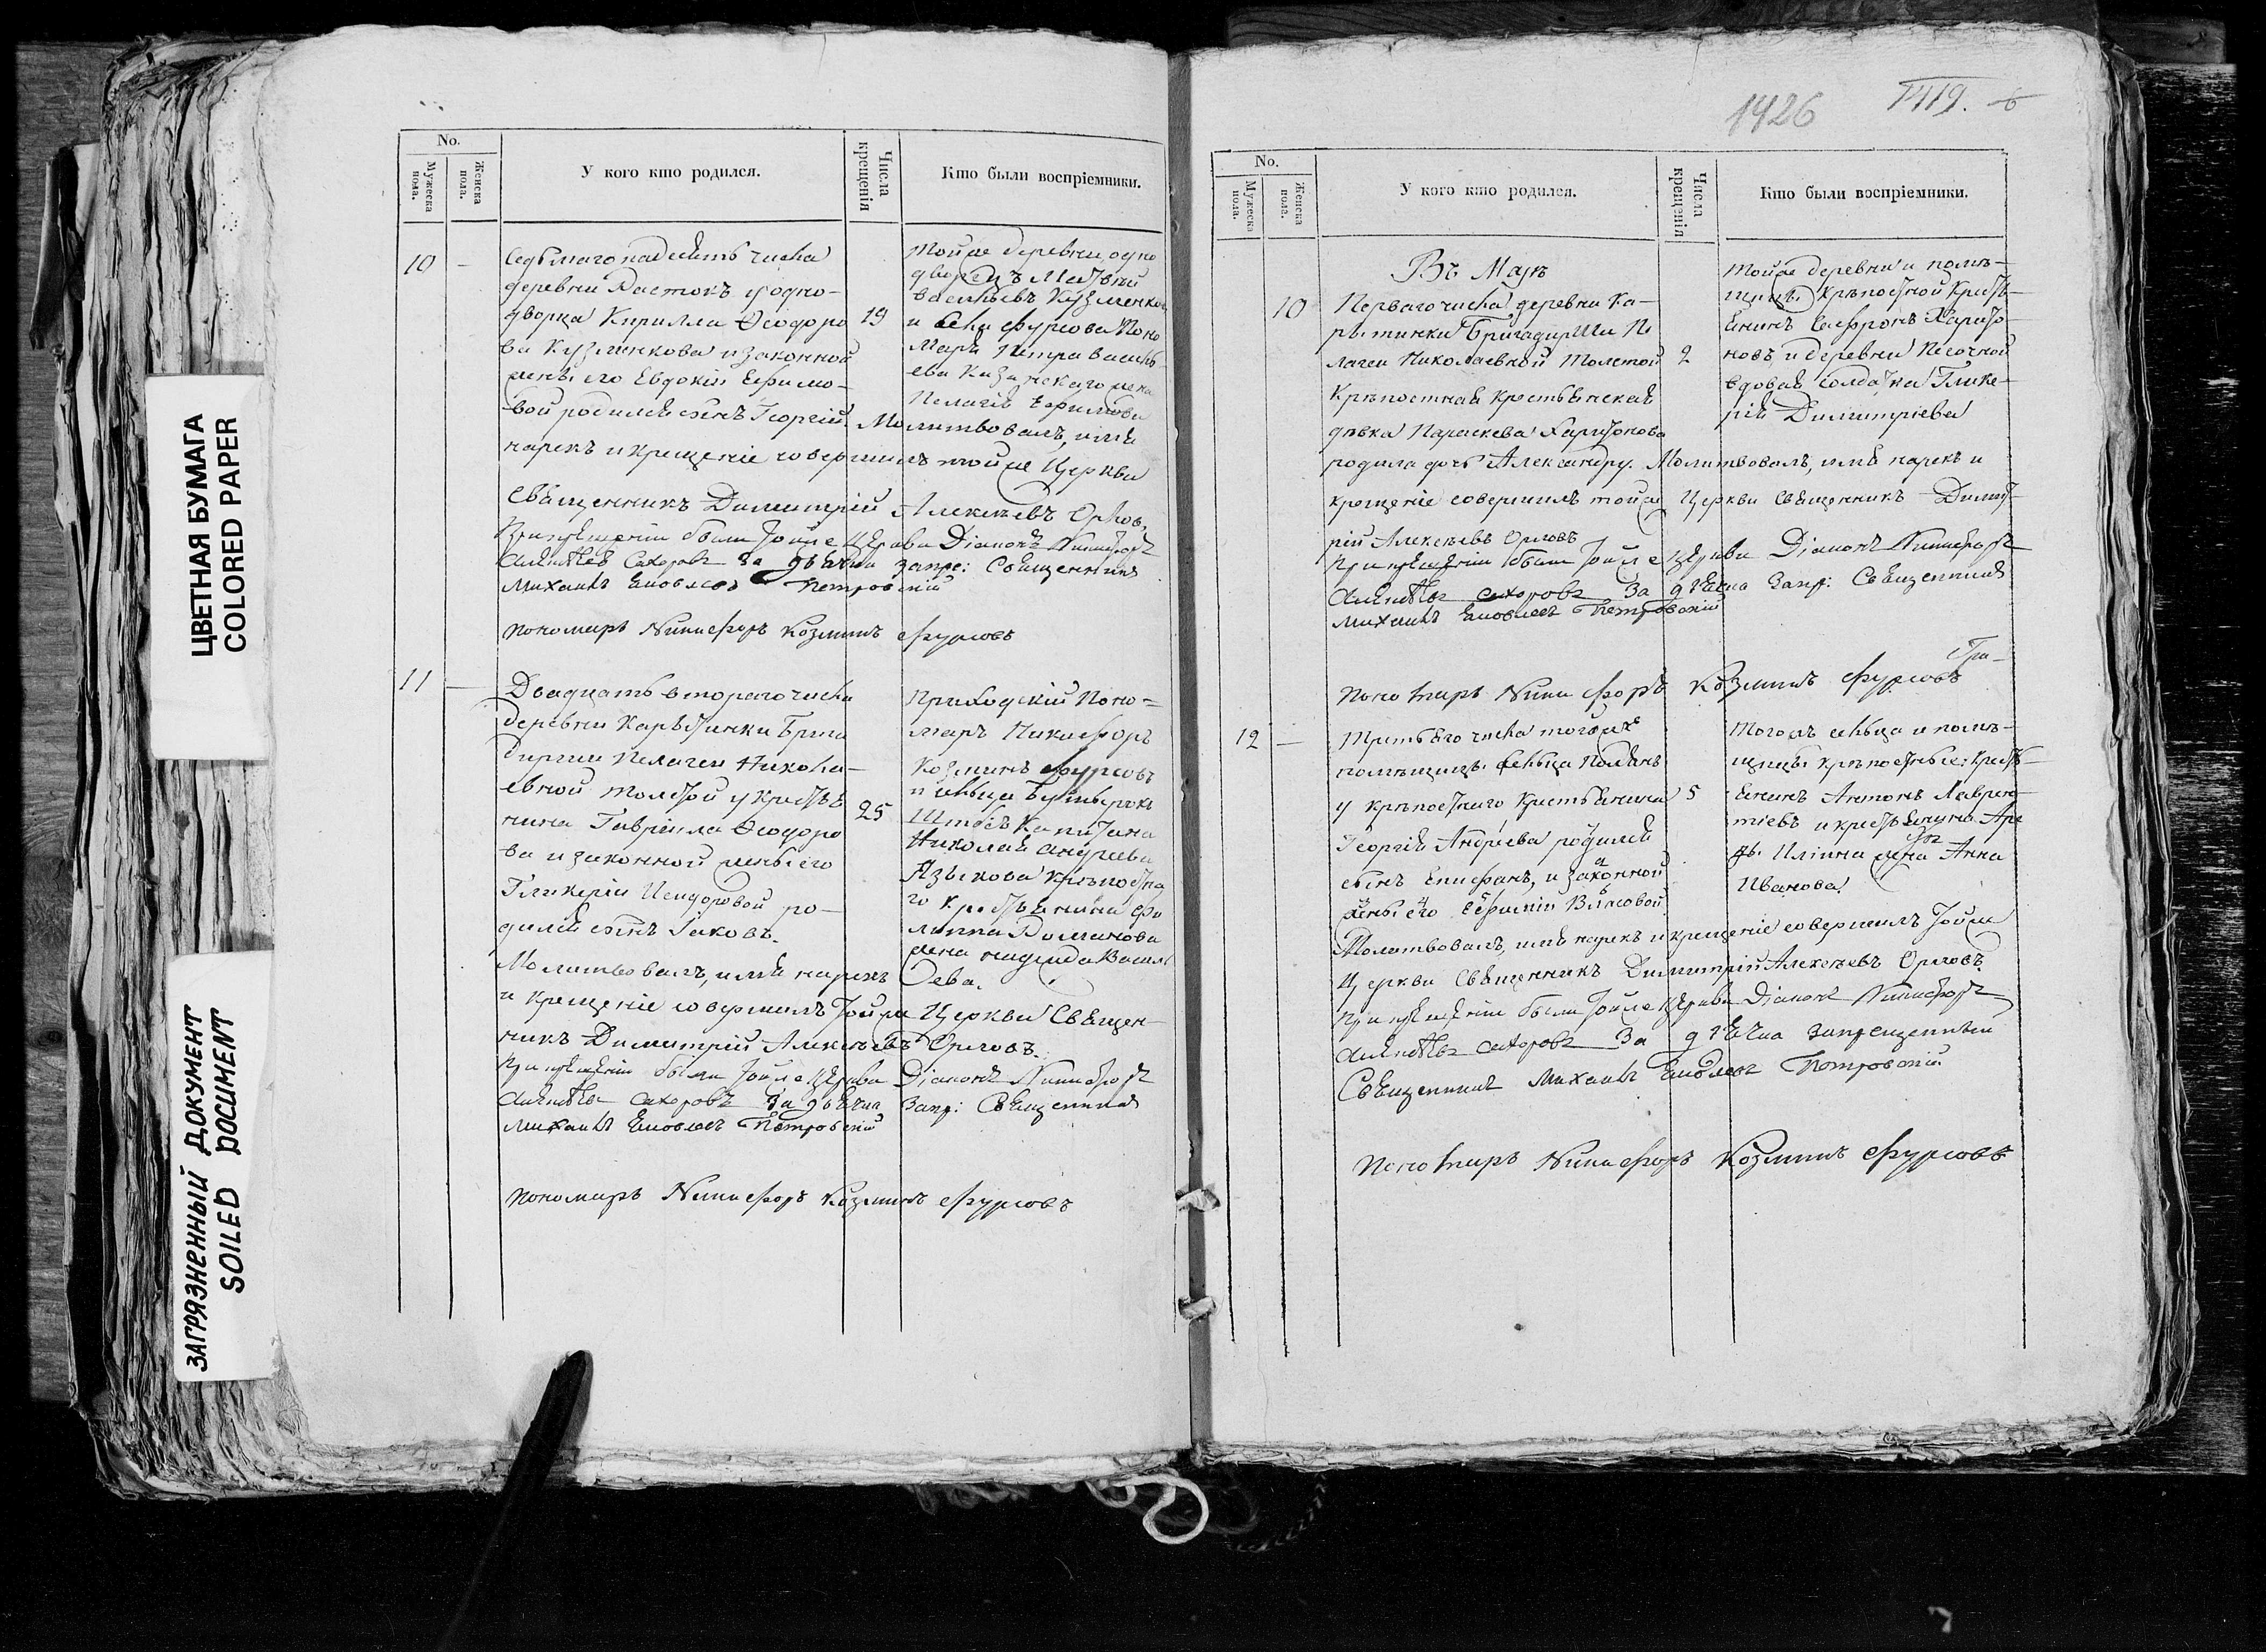 ЦВЕТНАЯ БУМАГА
COLORED PAPER
ЗАГРЯЗНЕННЫЙ ДОКУМЕНТ
SOILED DOCUMENT
No.
Мужеска пола.
Женска пола.
У кого кто родился.
Числа крещенія
Кто были воспріемники.
10 —
Седьмагонадесять числа
деревни Ростокъ у одно-
дворца Кирилла Ѳеодоро
ва Кузменкова и законной
жены его Евдокіи Ефимо-
вой родился сынъ Георгій.
19
Тойже деревни одно
дворецъ Матвѣй
Васильевъ Кузменковъ
и села Фурсова Поно
маря Петра Василь-
ева Казанскаго жена
Пелагія Ефимова
Молитвовалъ, имя
нарекъ и крещеніе совершилъ тойже Церкви
Священникъ Димитрій Алексѣевъ Орловъ,
При крещеніи были тойже церкви Діаконъ Никифоръ
Алексѣевъ Сахаровъ За дьячка запре: Священникъ
Михаилъ Яковлевъ Петровскій
Пономарь Никифоръ Козминъ Фурсовъ
11 —
Двадцать втораго числа
деревни Карытинки Брига
дирши Пелагеи Никола-
евной Толстой у крестья
нина Гавріила Ѳеодоро
ва и законной жены его
Гликеріи Исидоровой ро-
дился сынъ Іаковъ.
25
Приходскій Поно=
марь Никифоръ
Козминъ Фурсовъ
и сельца
Штабсъ Капитана
Николая Андреева
Языкова крѣпостна
го крестьянина Фи
липпа Романова
жена Надежда Васил
ева.
Молитвовалъ, имя нарекъ
и крещеніе совершилъ тойже Церкви Священ-
никъ Димитрій Алексѣевъ Орловъ.
При крещеніи были тойже церкви Діаконъ Никифоръ
Алексѣевъ Сахаровъ За дьячка Запр: Священникъ
Михаилъ Яковлевъ Петровскій
Пономарь Никифоръ Козминъ Фурсовъ
1426
1419. 6
No.
Мужеска пола.
Женска пола.
У кого кто родился.
Числа крещенія
Кто были воспріемники.
Въ Маѣ
10
Перваго числа, деревни Ка-
рытинки Бригадирши Пе
лагеи Николаевной Толстой
крѣпостная крестьянская
дѣвка Параскева Харитонова
2
Тойже деревни и помѣ-
щицы крѣпостной крестья-
янинъ Софронъ Харито-
новъ, и деревни Песочной
вдовая солдатка Глике-
рія Димитріева
родила дочь Александру. Молитвовалъ, имя нарекъ и
крещеніе совершилъ тойже Церкви Священникъ Димит-
рій Алексѣевъ Орловъ
При крещеніи были тойже церкви Діаконъ Никифоръ
Алексѣевъ Сахаровъ За дьячка Запр: Священникъ
Михаилъ Яковлевъ Петровскій
Пономарь Никифоръ Козминъ Фурсовъ
12 —
Третьяго числа тойже
помѣщицы сельца Полянъ
у крѣпостнаго крестьянина
Георгія Андреева родился
сынъ Епифанъ, и законной
жены его Евфиміи Власовой.
5
Тогожъ сельца и помѣ-
щицы крѣпостные: крестья-
янинъ Антонъ Лаврен-
тіевъ и крестьянина Аре
фы Иліина жена Анна
Иванова.
Молитвовалъ, имя нарекъ и крещеніе совершилъ тойже
Церкви Священникъ Димитрій Алексѣевъ Орловъ.
При крещеніи были тойже церкви Діаконъ Никифоръ
Алексѣевъ Сахаровъ За дьячка запрещенный
Священникъ Михаилъ Яковлевъ Петровскій
Пономарь Никифоръ Козминъ Фурсовъ